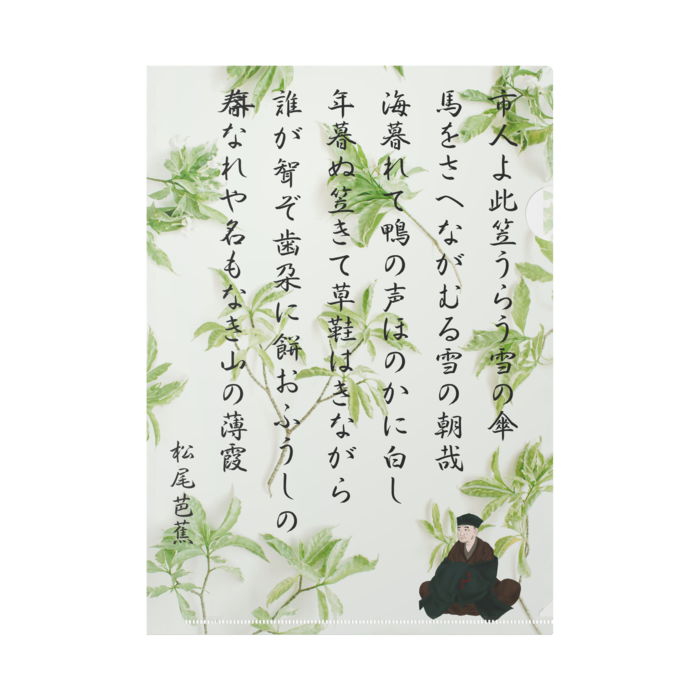 市人よ此笠うらう雪の傘
馬をさへながむる雪の朝哉
海暮れて鴨の声ほのかに白し
年暮ぬ笠きて草鞋はきながら
誰が聟ぞ歯朶に餅おふうしの
春なれや名もなき山の薄霞
松尾芭蕉